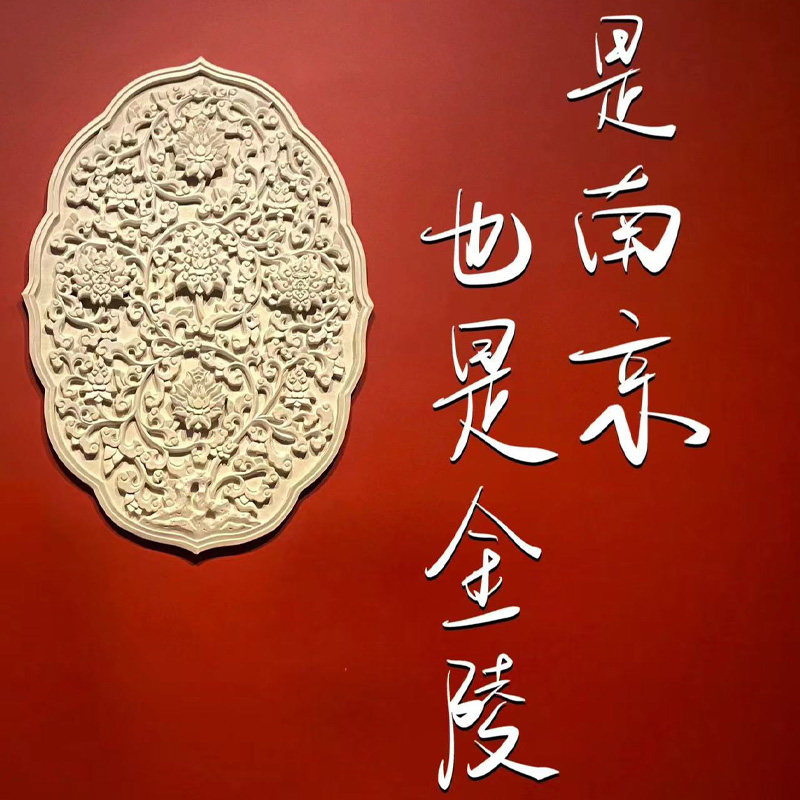 是南京
也是金陵